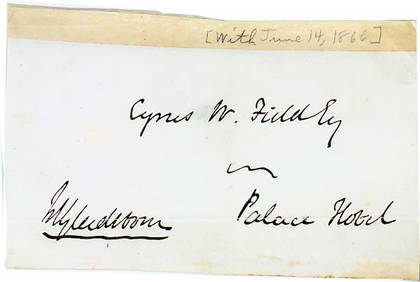 [With June 14, 1866]
Cyrus W. Field Esq
Palace Hotel
WEGladstone